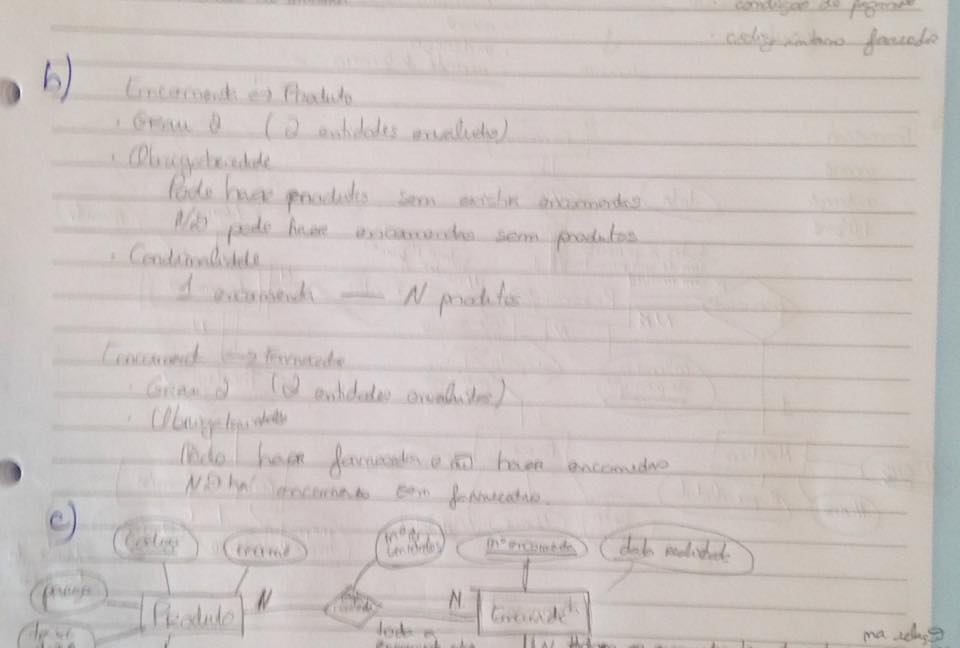 condição de pagamento
codigo interno fornecedor
b)
Encomenda ↔ Produto
· Grau 2 (2 entidades envolvidas)
· Obrigatoriedade
Pode haver produtos sem existir encomendas
Não pode haver encomendas sem produtos
· Cardinalidade
1 encomenda — N produtos
Encomend ↔ Fornecedo
· Grau 2 (2 entidades envolvidas)
· Obrigatoriedade
Pode haver fornecedor e não haver encomendas
Não há encomenda sem fornecedor
c)
Codigo
nome
nº de
nº encomenda
data
preço
Produto
N
N
Encomenda
toda a
na relação